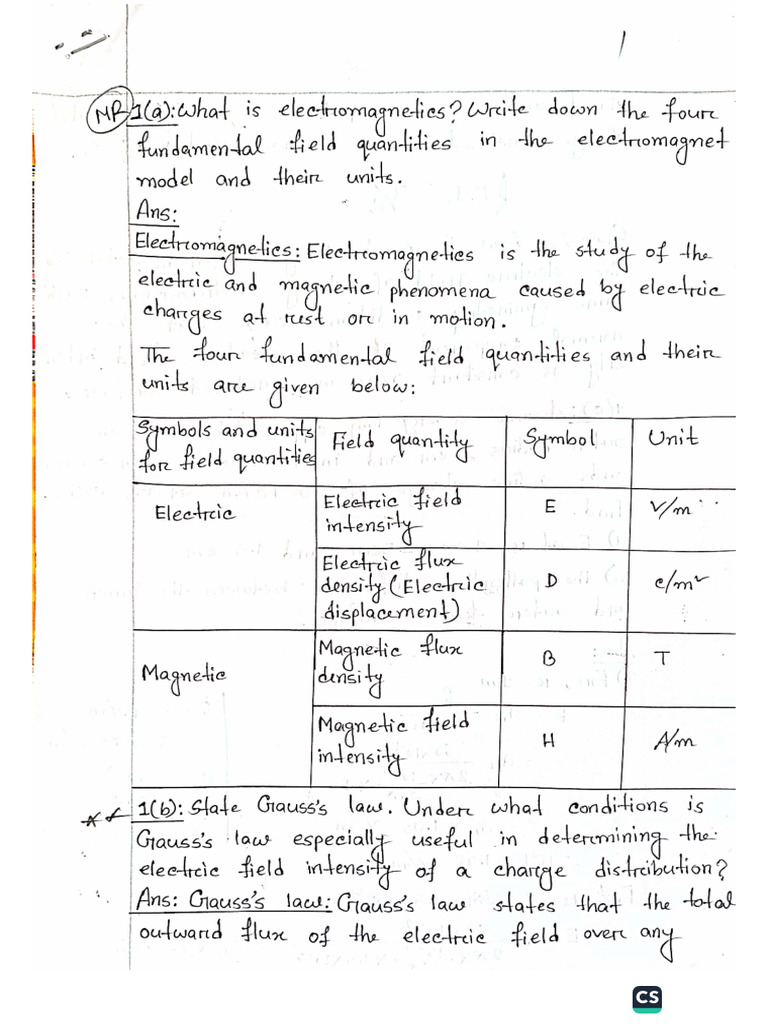 1
MR 1(a): What is electromagnetics? Write down the four
fundamental field quantities in the electromagnet
model and their units.
Ans:
Electromagnetics: Electromagnetics is the study of the
electric and magnetic phenomena caused by electric
charges at rest or in motion.
The four fundamental field quantities and their
units are given below:
Symbols and units for field quantities | Field quantity | Symbol | Unit
Electric | Electric field intensity | E | V/m
Electric flux density (Electric displacement) | D | c/m²
Magnetic | Magnetic flux density | B | T
Magnetic field intensity | H | A/m
1(b): State Gauss's law. Under what conditions is
Gauss's law especially useful in determining the
electric field intensity of a charge distribution?
Ans: Gauss's law: Gauss's law states that the total
outward flux of the electric field over any
CS